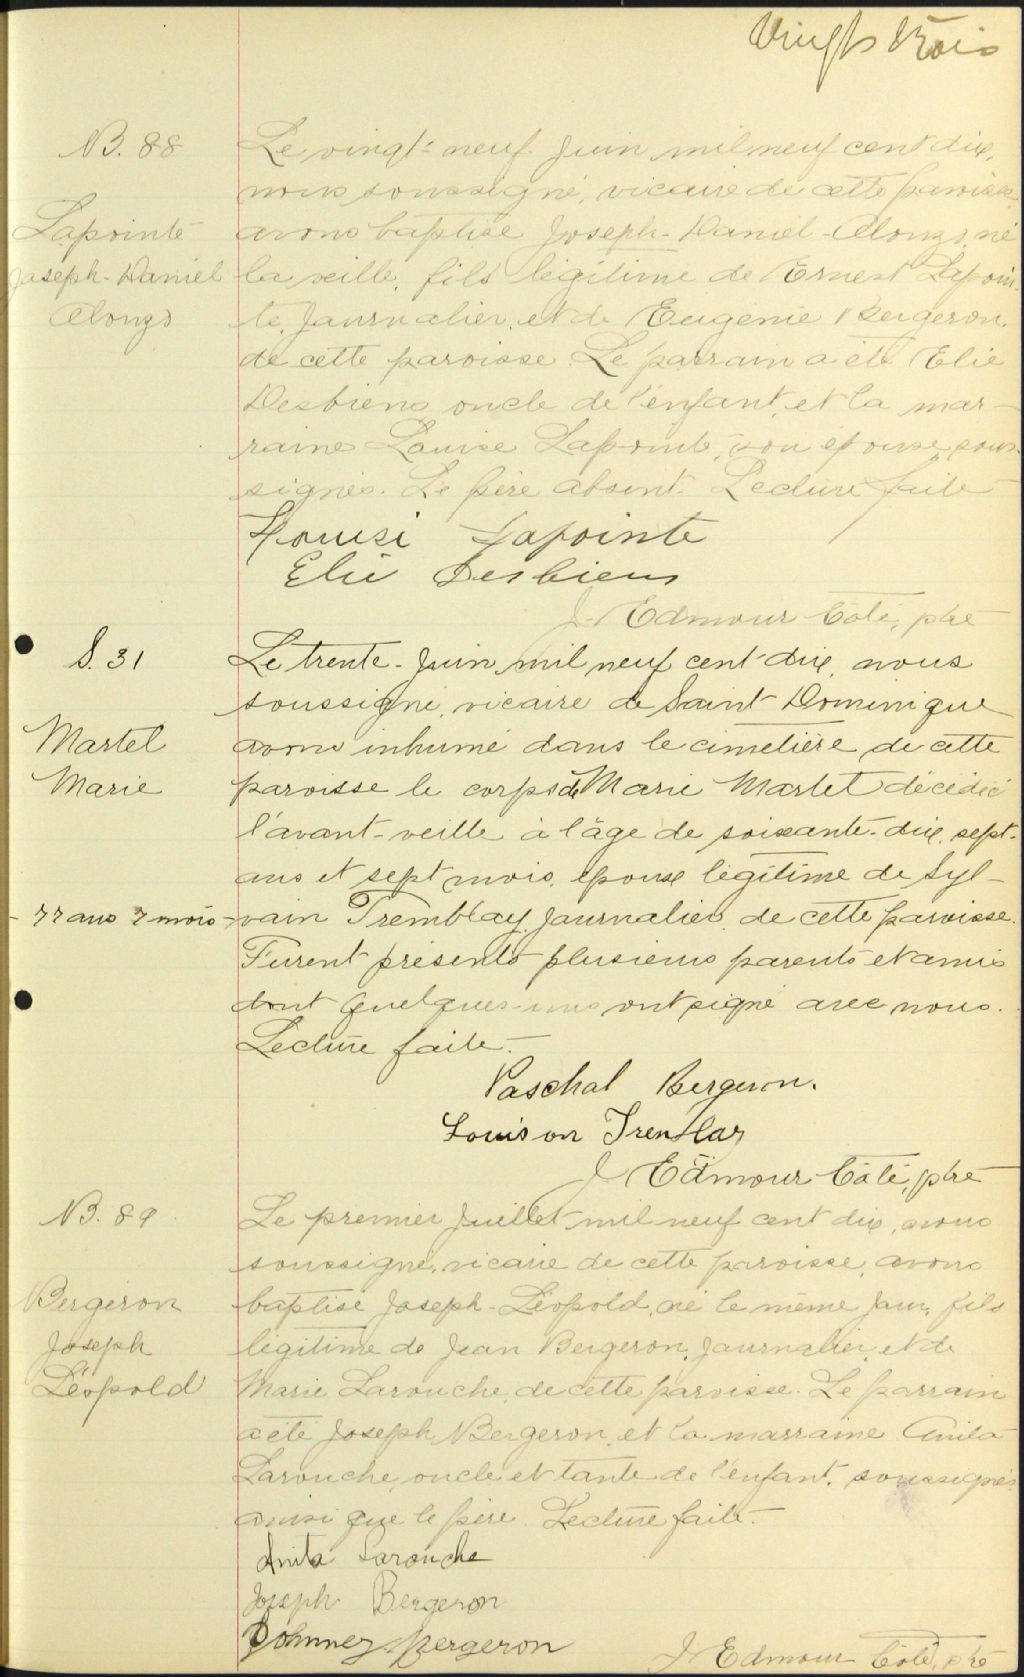 Vingt trois
B. 88
Lapointe
Joseph-Daniel
Alonzo
Le vingt-neuf Juin mil neuf cent dix,
nous soussigné, vicaire de cette paroisse
avons baptisé Joseph-Daniel-Alonzo, né
la veille, fils légitime de Ernest Lapoin-
te, Journalier, et de Eugénie Bergeron,
de cette paroisse. Le parrain a été Elie
Desbiens oncle de l'enfant, et la mar-
raine Louise Lapointe, son épouse, sous-
signés. Le père absent. Lecture faite
Louise Lapointe
Elie Desbiens
J. Edmour Côté, ptre
S. 31
Martel
Marie
- 77 ans 7 mois -
Le trente Juin mil neuf cent dix, nous
soussigné, vicaire de Saint Dominique
avons inhumé dans le cimetière de cette
paroisse le corps de Marie Martel décédée
l'avant-veille à l'âge de soixante-dix-sept-
ans et sept mois, épouse légitime de Syl-
vain Tremblay, Journalier, de cette paroisse.
Furent présents plusieurs parents et amis
dont quelques-uns ont signé avec nous.
Lecture faite.
Paschal Bergeron.
Louison Tremblay
J. Edmour Côté, ptre
B. 89
Bergeron
Joseph
Léopold
Le premier Juillet mil neuf cent dix, nous
soussigné, vicaire de cette paroisse, avons
baptisé Joseph-Léopold, né le même jour, fils
légitime de Jean Bergeron, Journalier, et de
Marie Larouche, de cette paroisse. Le parrain
a été Joseph Bergeron, et la marraine Anita
Larouche, oncle et tante de l'enfant, soussignés
ainsi que le père. Lecture faite.
Anita Larouche
Joseph Bergeron
Johnney Bergeron
J. Edmour Côté, ptre